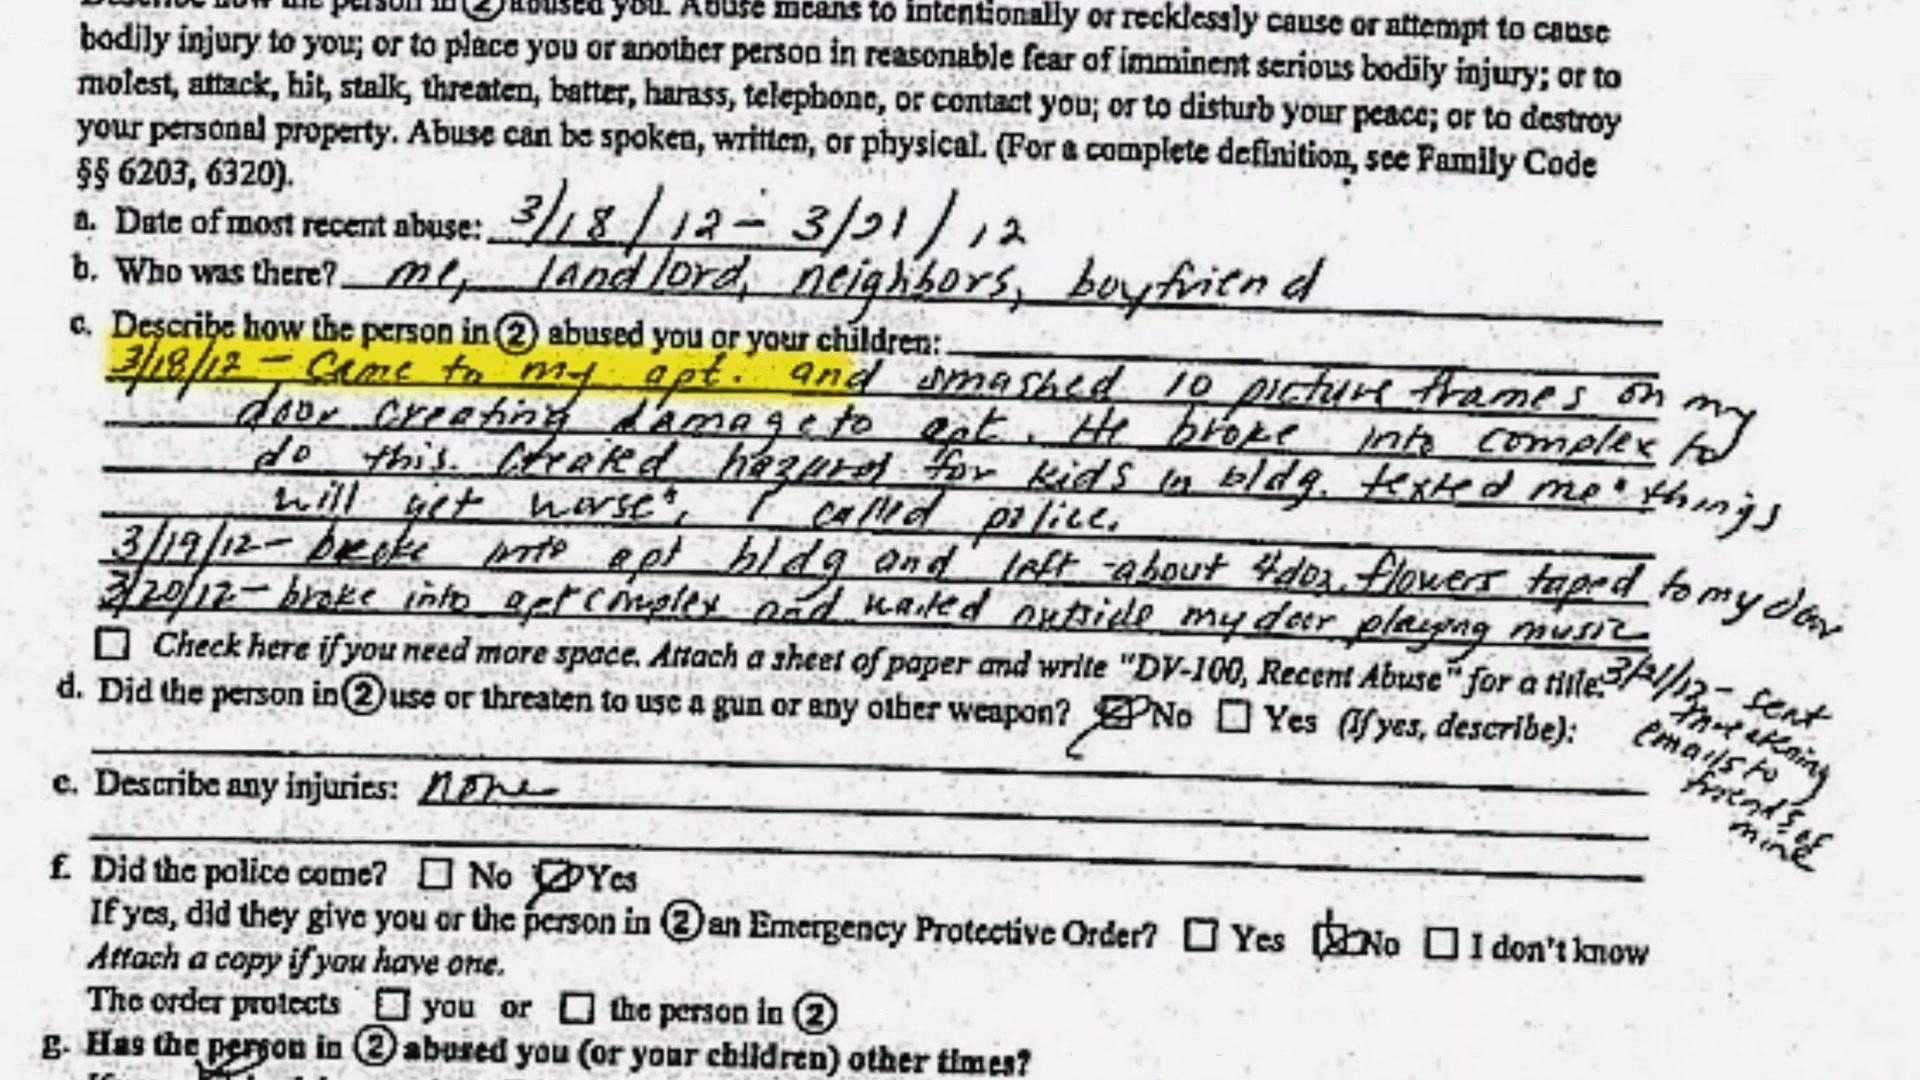 Describe how the person in ② abused you. Abuse means to intentionally or recklessly cause or attempt to cause
bodily injury to you; or to place you or another person in reasonable fear of imminent serious bodily injury; or to
molest, attack, hit, stalk, threaten, batter, harass, telephone, or contact you; or to disturb your peace; or to destroy
your personal property. Abuse can be spoken, written, or physical. (For a complete definition, see Family Code
§§ 6203, 6320).
a. Date of most recent abuse: 3/18/12 - 3/21/12
b. Who was there? me, landlord, neighbors, boyfriend
c. Describe how the person in ② abused you or your children:
3/18/12 - Came to my apt. and smashed 10 picture frames on my
door creating damage to apt. He broke into complex to
do this. Created hazard for kids in bldg. texted me "things
will get worse", I called police.
3/19/12 - broke into apt bldg and left about 4 doz. flowers taped to my door
3/20/12 - broke into apt complex and waited outside my door playing music
☐ Check here if you need more space. Attach a sheet of paper and write "DV-100, Recent Abuse" for a title.
3/21/12 - sent
threatening
emails to
friends of
mine
d. Did the person in ② use or threaten to use a gun or any other weapon? ☑ No ☐ Yes (If yes, describe):
e. Describe any injuries: none
f. Did the police come? ☐ No ☑ Yes
If yes, did they give you or the person in ② an Emergency Protective Order? ☐ Yes ☒ No ☐ I don't know
Attach a copy if you have one.
The order protects ☐ you or ☐ the person in ②
g. Has the person in ② abused you (or your children) other times?